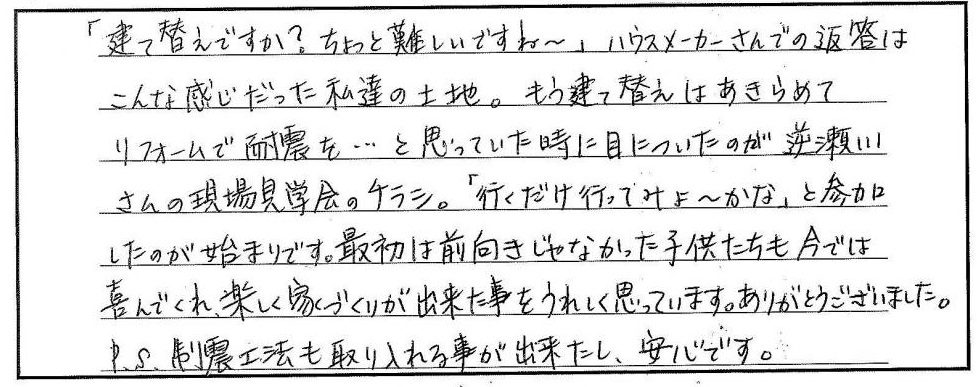 「建て替えですか？ちょっと難しいですね〜」ハウスメーカーさんでの返答は
こんな感じだった私達の土地。もう建て替えはあきらめて
リフォームで耐震を…と思っていた時に目についたのが逆瀬川
さんの現場見学会のチラシ。「行くだけ行ってみよ〜かな」と参加
したのが始まりです。最初は前向きじゃなかった子供たちも今では
喜んでくれ、楽しく家づくりが出来た事をうれしく思っています。ありがとうございました。
P.S. 制震工法も取り入れる事が出来たし、安心です。